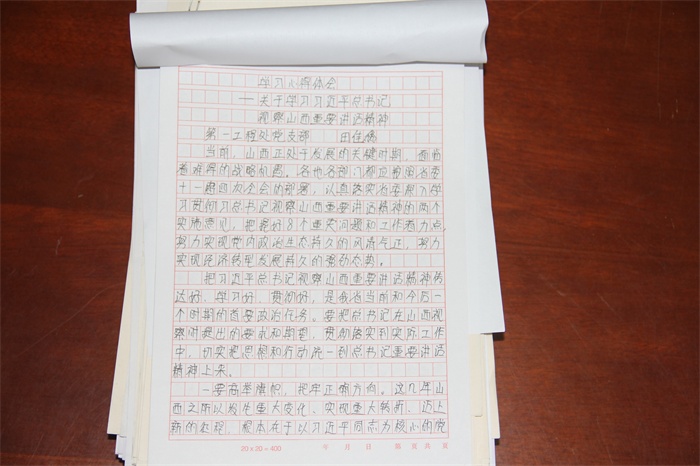 学习心得体会
——关于学习习近平总书记
视察山西重要讲话精神
第一工程处党支部 田佳
当前，山西正处于发展的关键时期，面临
着难得的战略机遇。各地各部门都正按照省委
十一届四次全会的部署，认真落实省委深入学
习贯彻习总书记视察山西重要讲话精神的两个
实施意见，把握好8个重大问题和工作着力点，
努力实现党内政治生态持久的风清气正，努力
实现经济转型发展持久的强劲态势。
把习近平总书记视察山西重要讲话精神传
达好、学习好、贯彻好，是我省当前和今后一
个时期的首要政治任务。要把总书记在山西视
察时提出的要求和期望，贯彻落实到实际工作
中，切实把思想和行动统一到总书记重要讲话
精神上来。
一要高举旗帜，把牢正确方向。这几年山
西之所以发生重大变化、实现重大转折、迈上
新的征程，根本在于以习近平同志为核心的党
20×20＝400 年 月 日 第 页 共 页